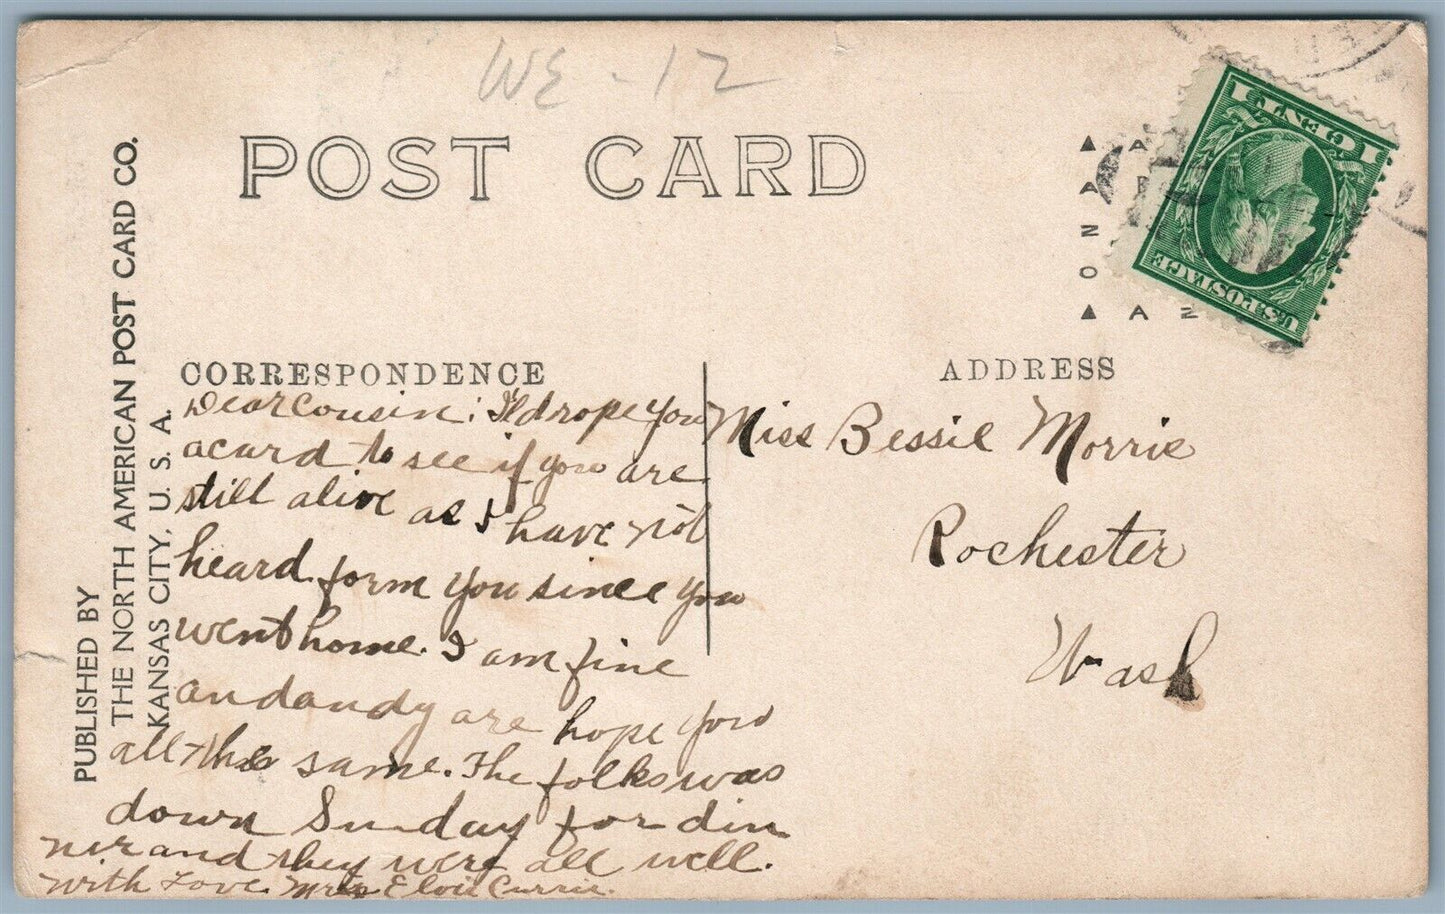 WE - 12
POST CARD
1 CENT 1
U.S. POSTAGE
AZO
PUBLISHED BY
THE NORTH AMERICAN POST CARD CO.
KANSAS CITY, U. S. A.
CORRESPONDENCE
Dear Cousin; I'll drope you
a card to see if you are
still alive as I have not
heard form you since you
went home. I am fine
and dandy are hope you
all the same. The folks was
down Sunday for din
ner and they were all well.
With Love. Mrs Elvie Currie.
ADDRESS
Miss Bessie Morris
Rochester
Wash